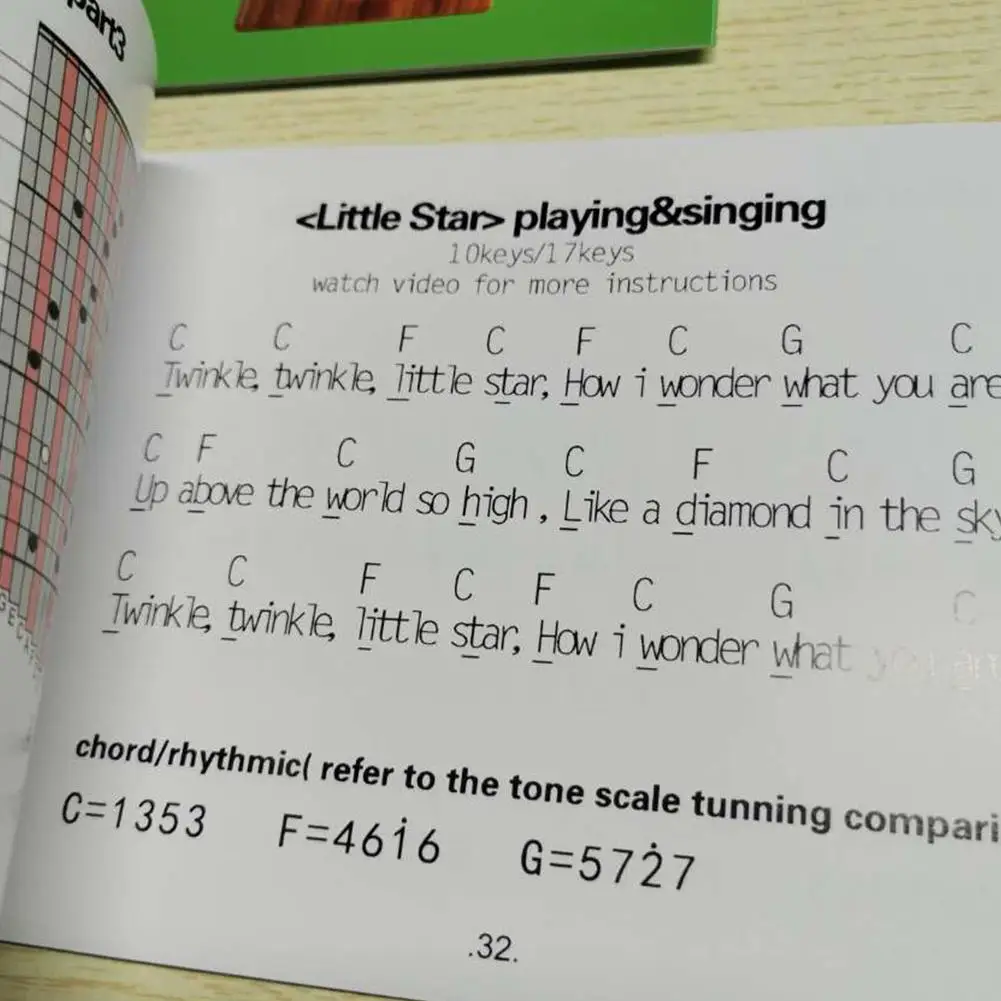 part3
<Little Star> playing&singing
10keys/17keys
watch video for more instructions
C C F C F C G C
Twinkle, twinkle, little star, How i wonder what you are
C F C G C F C G
Up above the world so high , Like a diamond in the sky
C C F C F C G C
Twinkle, twinkle, little star, How i wonder what you
chord/rhythmic( refer to the tone scale tunning compari
C=1353 F=46i̇6 G=572̇7
.32.